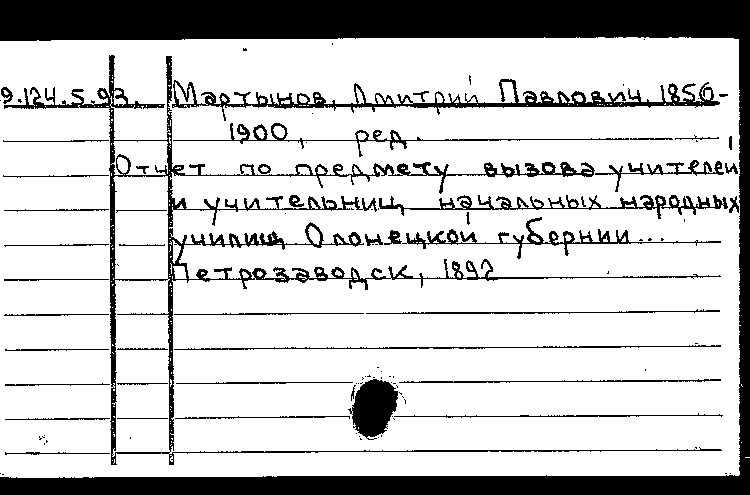 9.124.5.93. Мартынов, Дмитрий Павлович, 1850-
1900, ред.
Отчет по предмету вызова учителей
и учительниц начальных народных
училищ Олонецкой губернии...
Петрозаводск, 1892